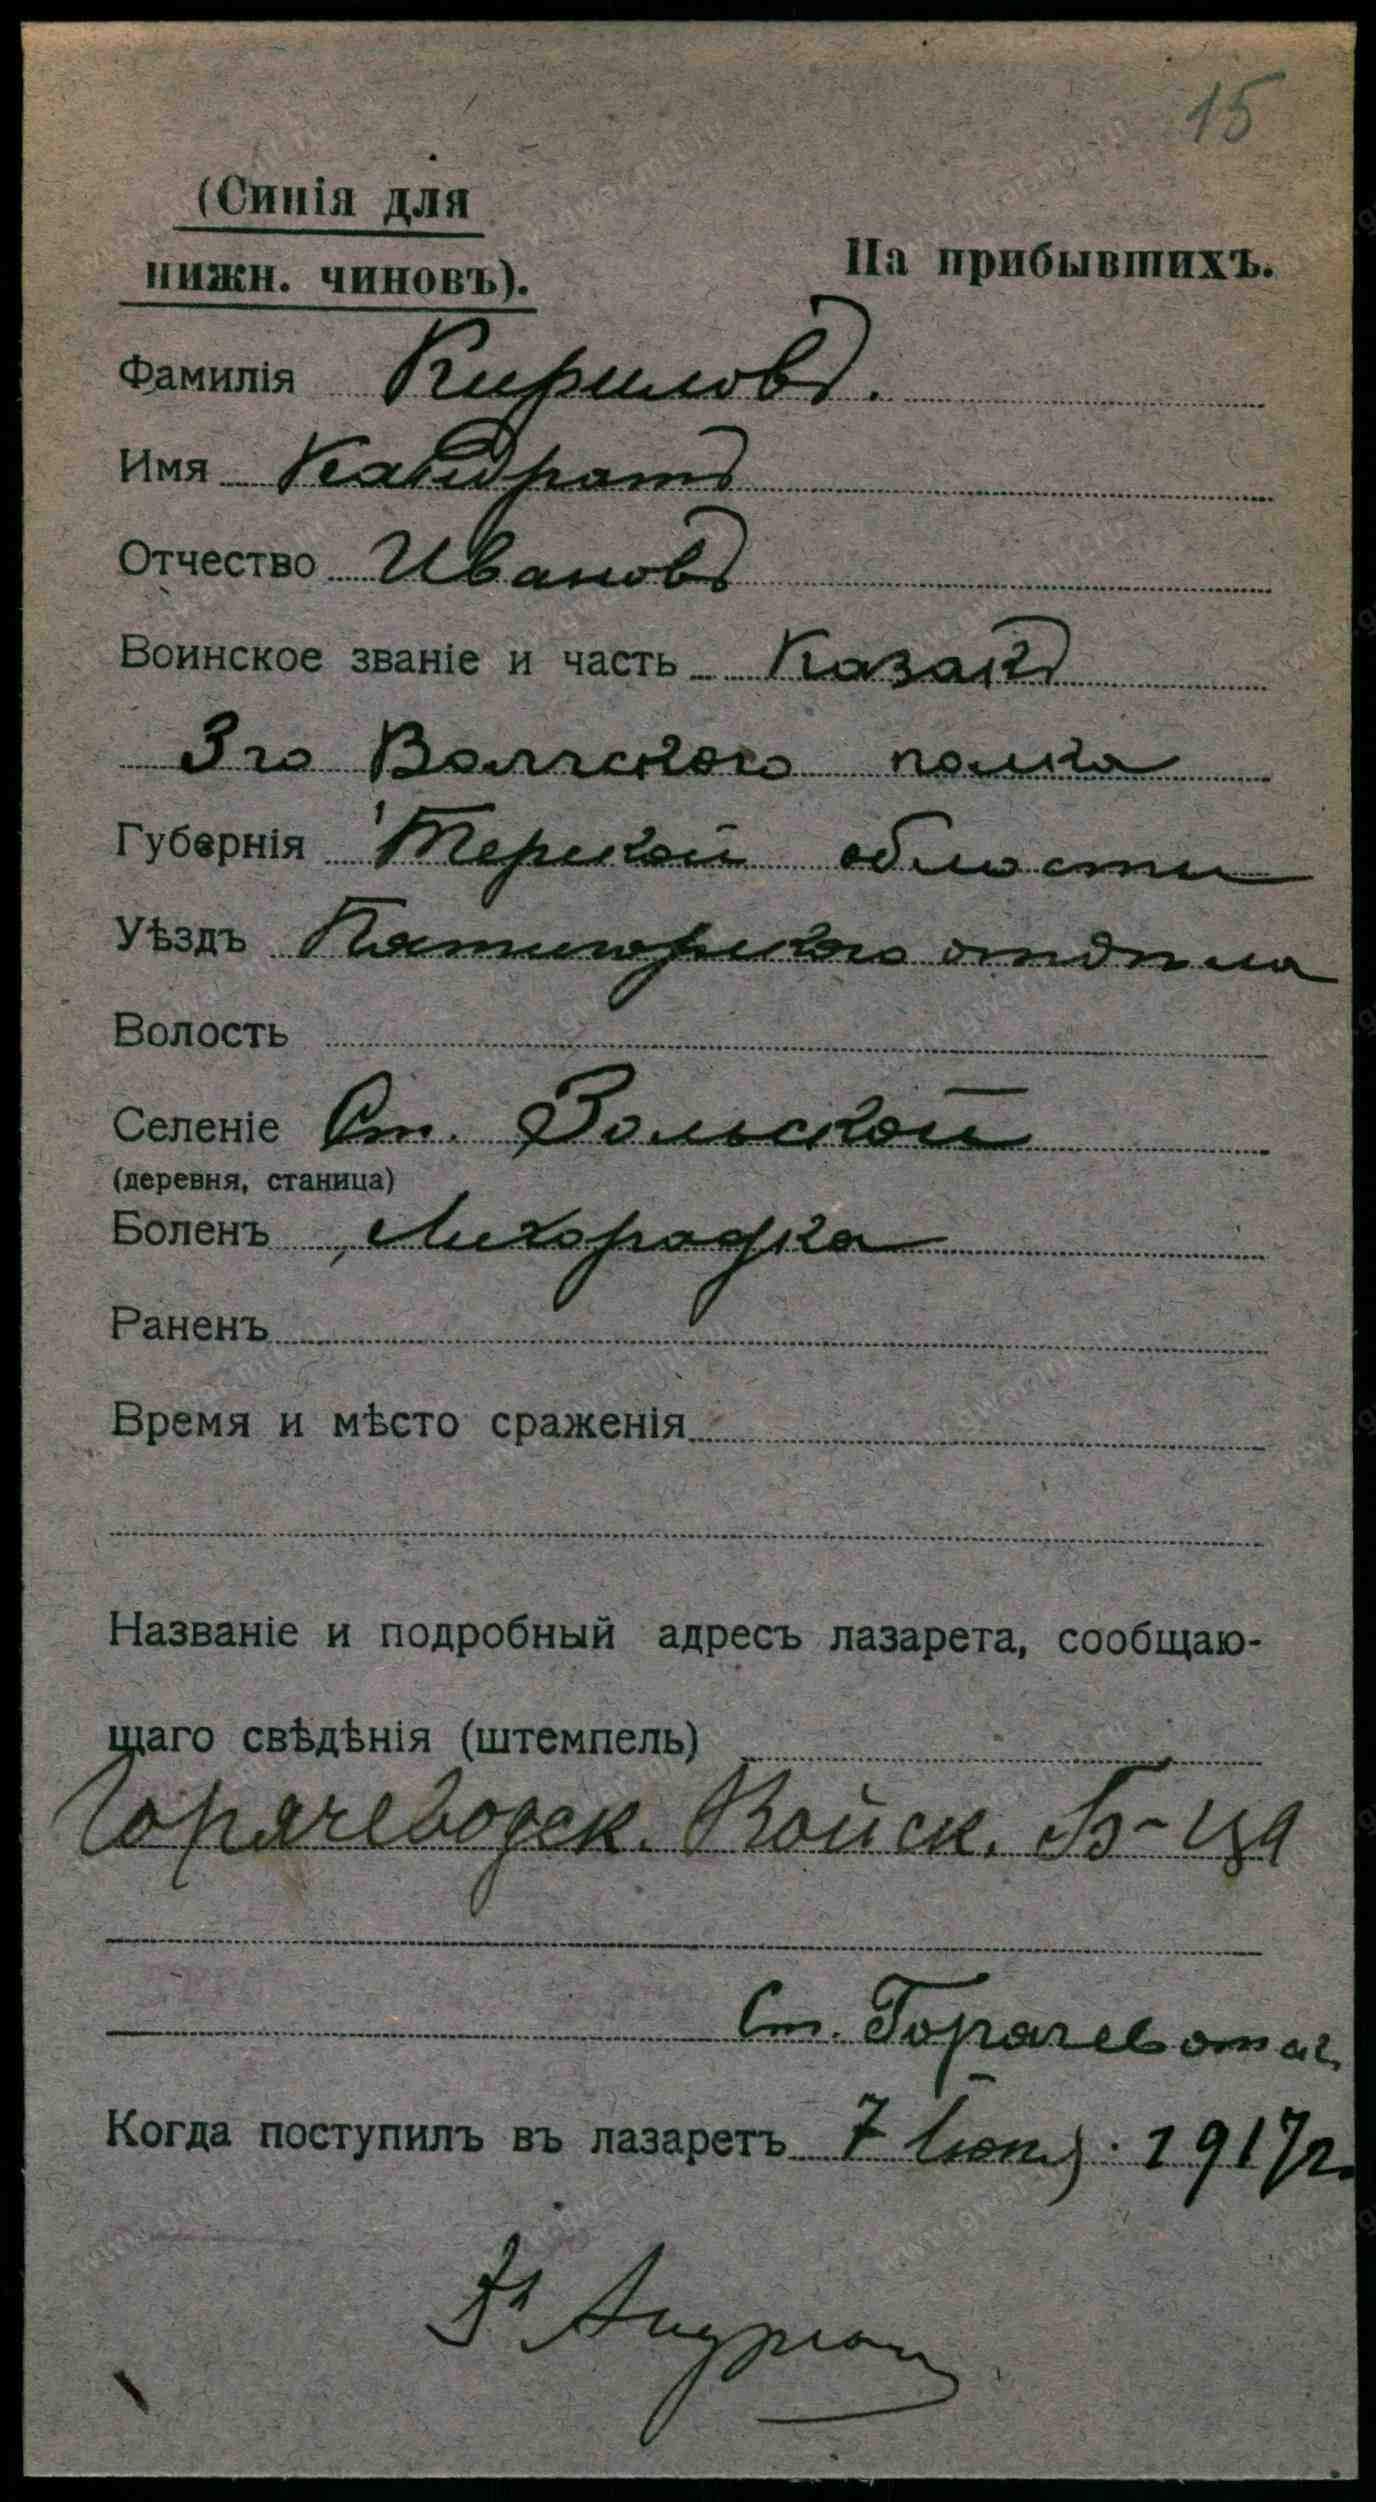 15
(Синія для
нижн. чиновъ).
На прибывшихъ.
Фамилія Кириловъ.
Имя Кандратъ
Отчество Ивановъ
Воинское званіе и часть Казакъ
3го Волгскаго полка
Губернія Терской области
Уѣздъ Пятигорскаго отдѣла
Волость
Селеніе Ст. Зольской
(деревня, станица)
Боленъ Лихорадка
Раненъ
Время и мѣсто сраженія
Названіе и подробный адресъ лазарета, сообщаю-
щаго свѣдѣнія (штемпель)
Горячеводск. Войск. Б-ца
Ст. Горячевотск.
Когда поступилъ въ лазаретъ 7 Іюня. 1917 г.